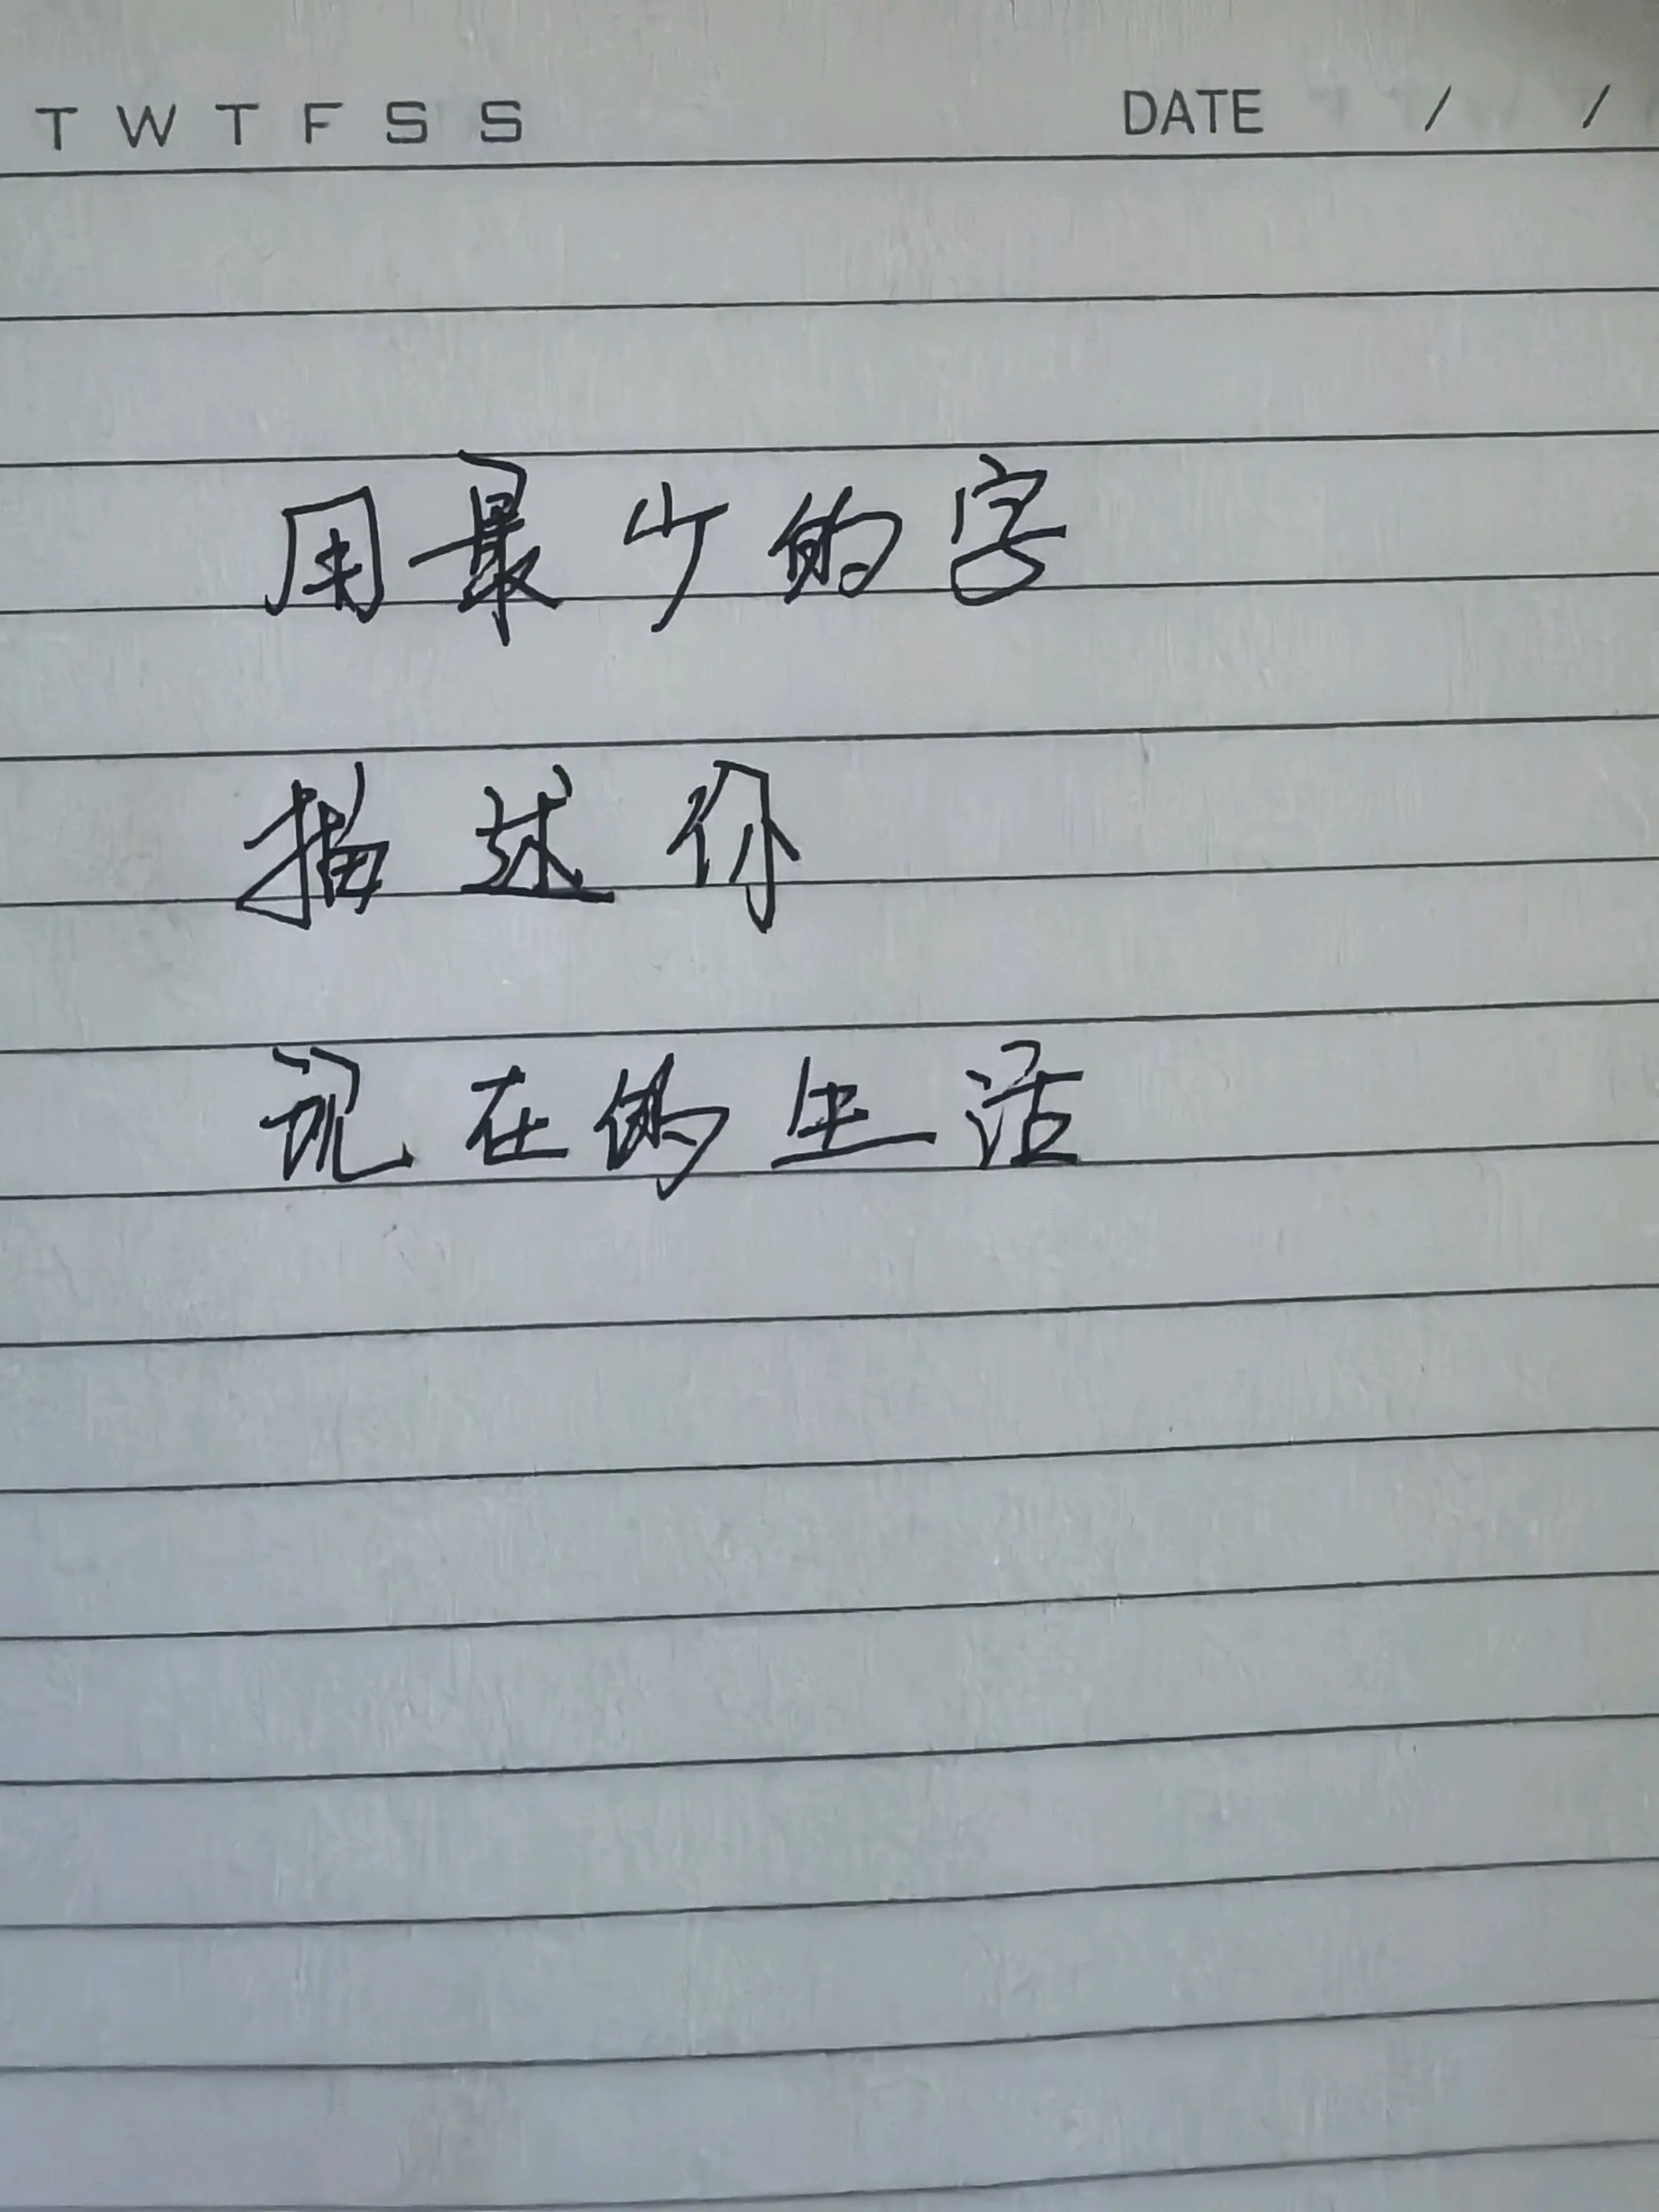 T W T F S S DATE / /
用最少的字
描述你
现在的生活